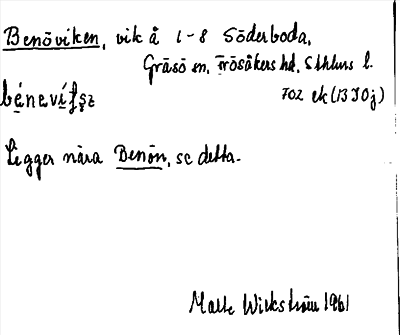 Benöviken, vik å 1-8 Söderboda,
Gräsö sn, Frösåkers hd, Sthlms l.
702 ek (13 I 0j)
bẹ́nevi̯ḱ
Ligger nära Benön, se detta.
Malte Wickström 1961